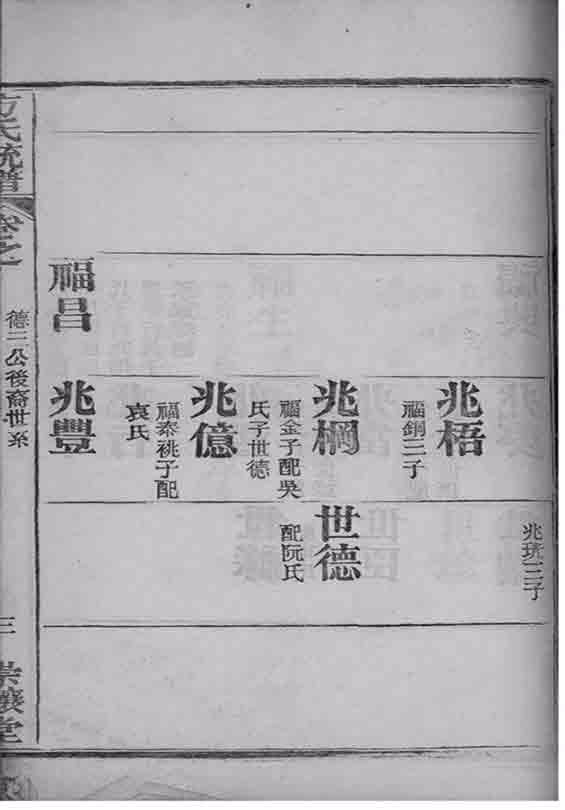 兆珫三子
兆梧
福銅三子
兆棡
福金子配吳
氏子世德
世德
配阮氏
兆億
福泰祧子配
袁氏
福昌
兆豐
方氏統譜
卷之
德三公後裔世系
三
崇讓堂